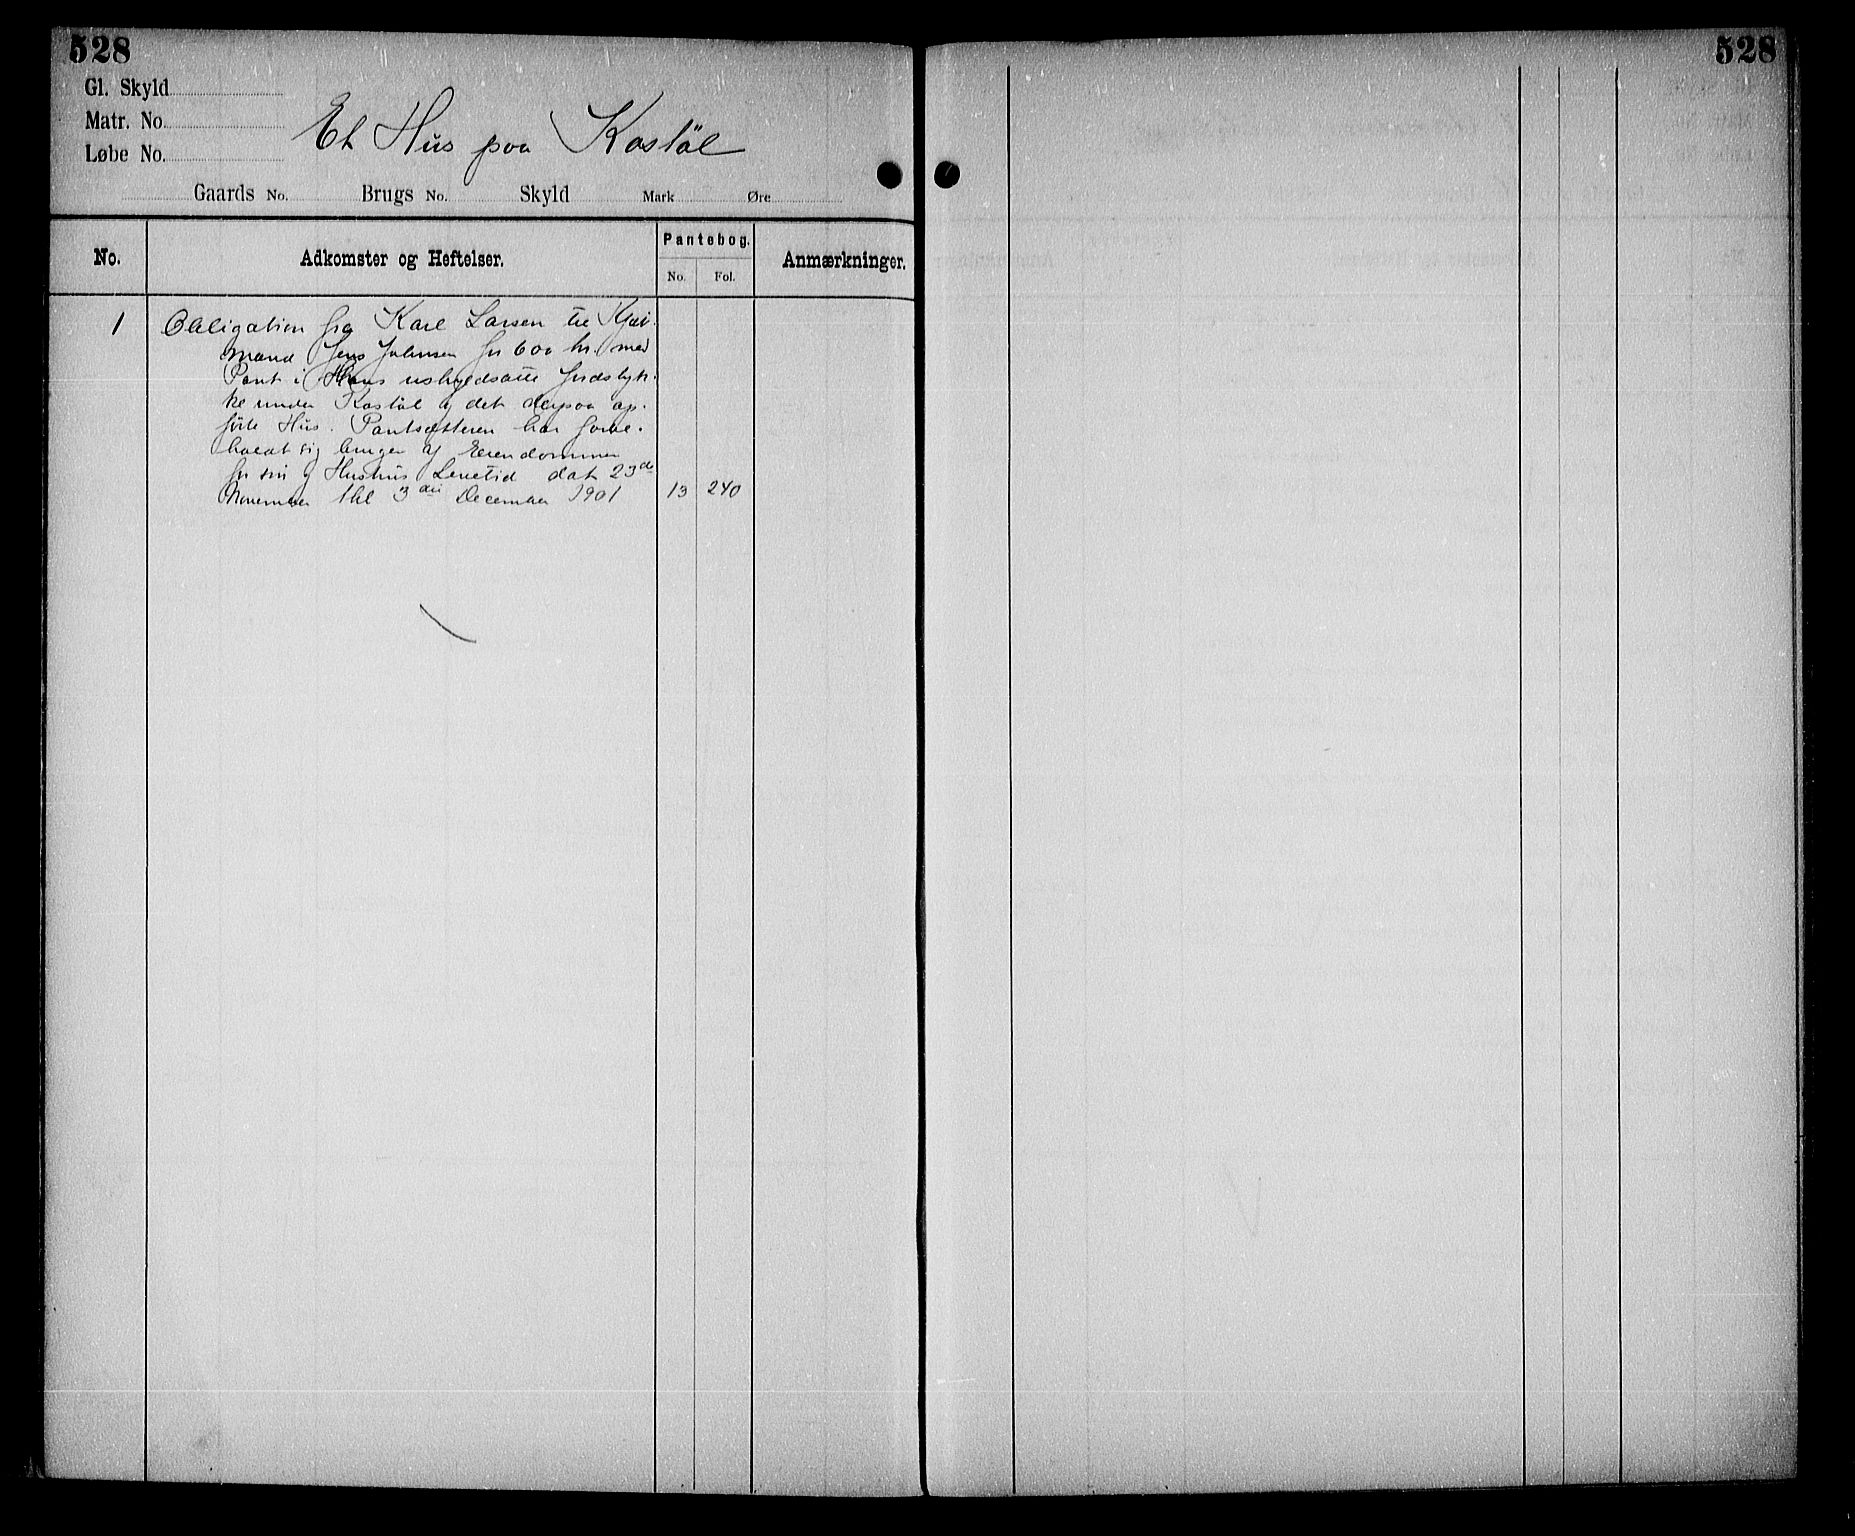 528
528
Gl. Skyld
Matr. No.
Løbe No.
Et Hus paa Kostöl
Gaards No. Brugs No. Skyld Mark Øre
No. Adkomster og Heftelser. Pantebog. Anmærkninger.
No. Fol.
1 Obligation fra Karl Larsen til Kjøb-
mand Jens Johnsen for 600 kr. med
Pant i Hans uskyldsatte Jordstyk-
ke under Kostöl og det derpaa op-
førte Hus. Pantsætteren har forbe-
holdt sig brugen af Eiendommen
for sin og Hustrus Levetid dat 23de
November thl 3die December 1901 13 240